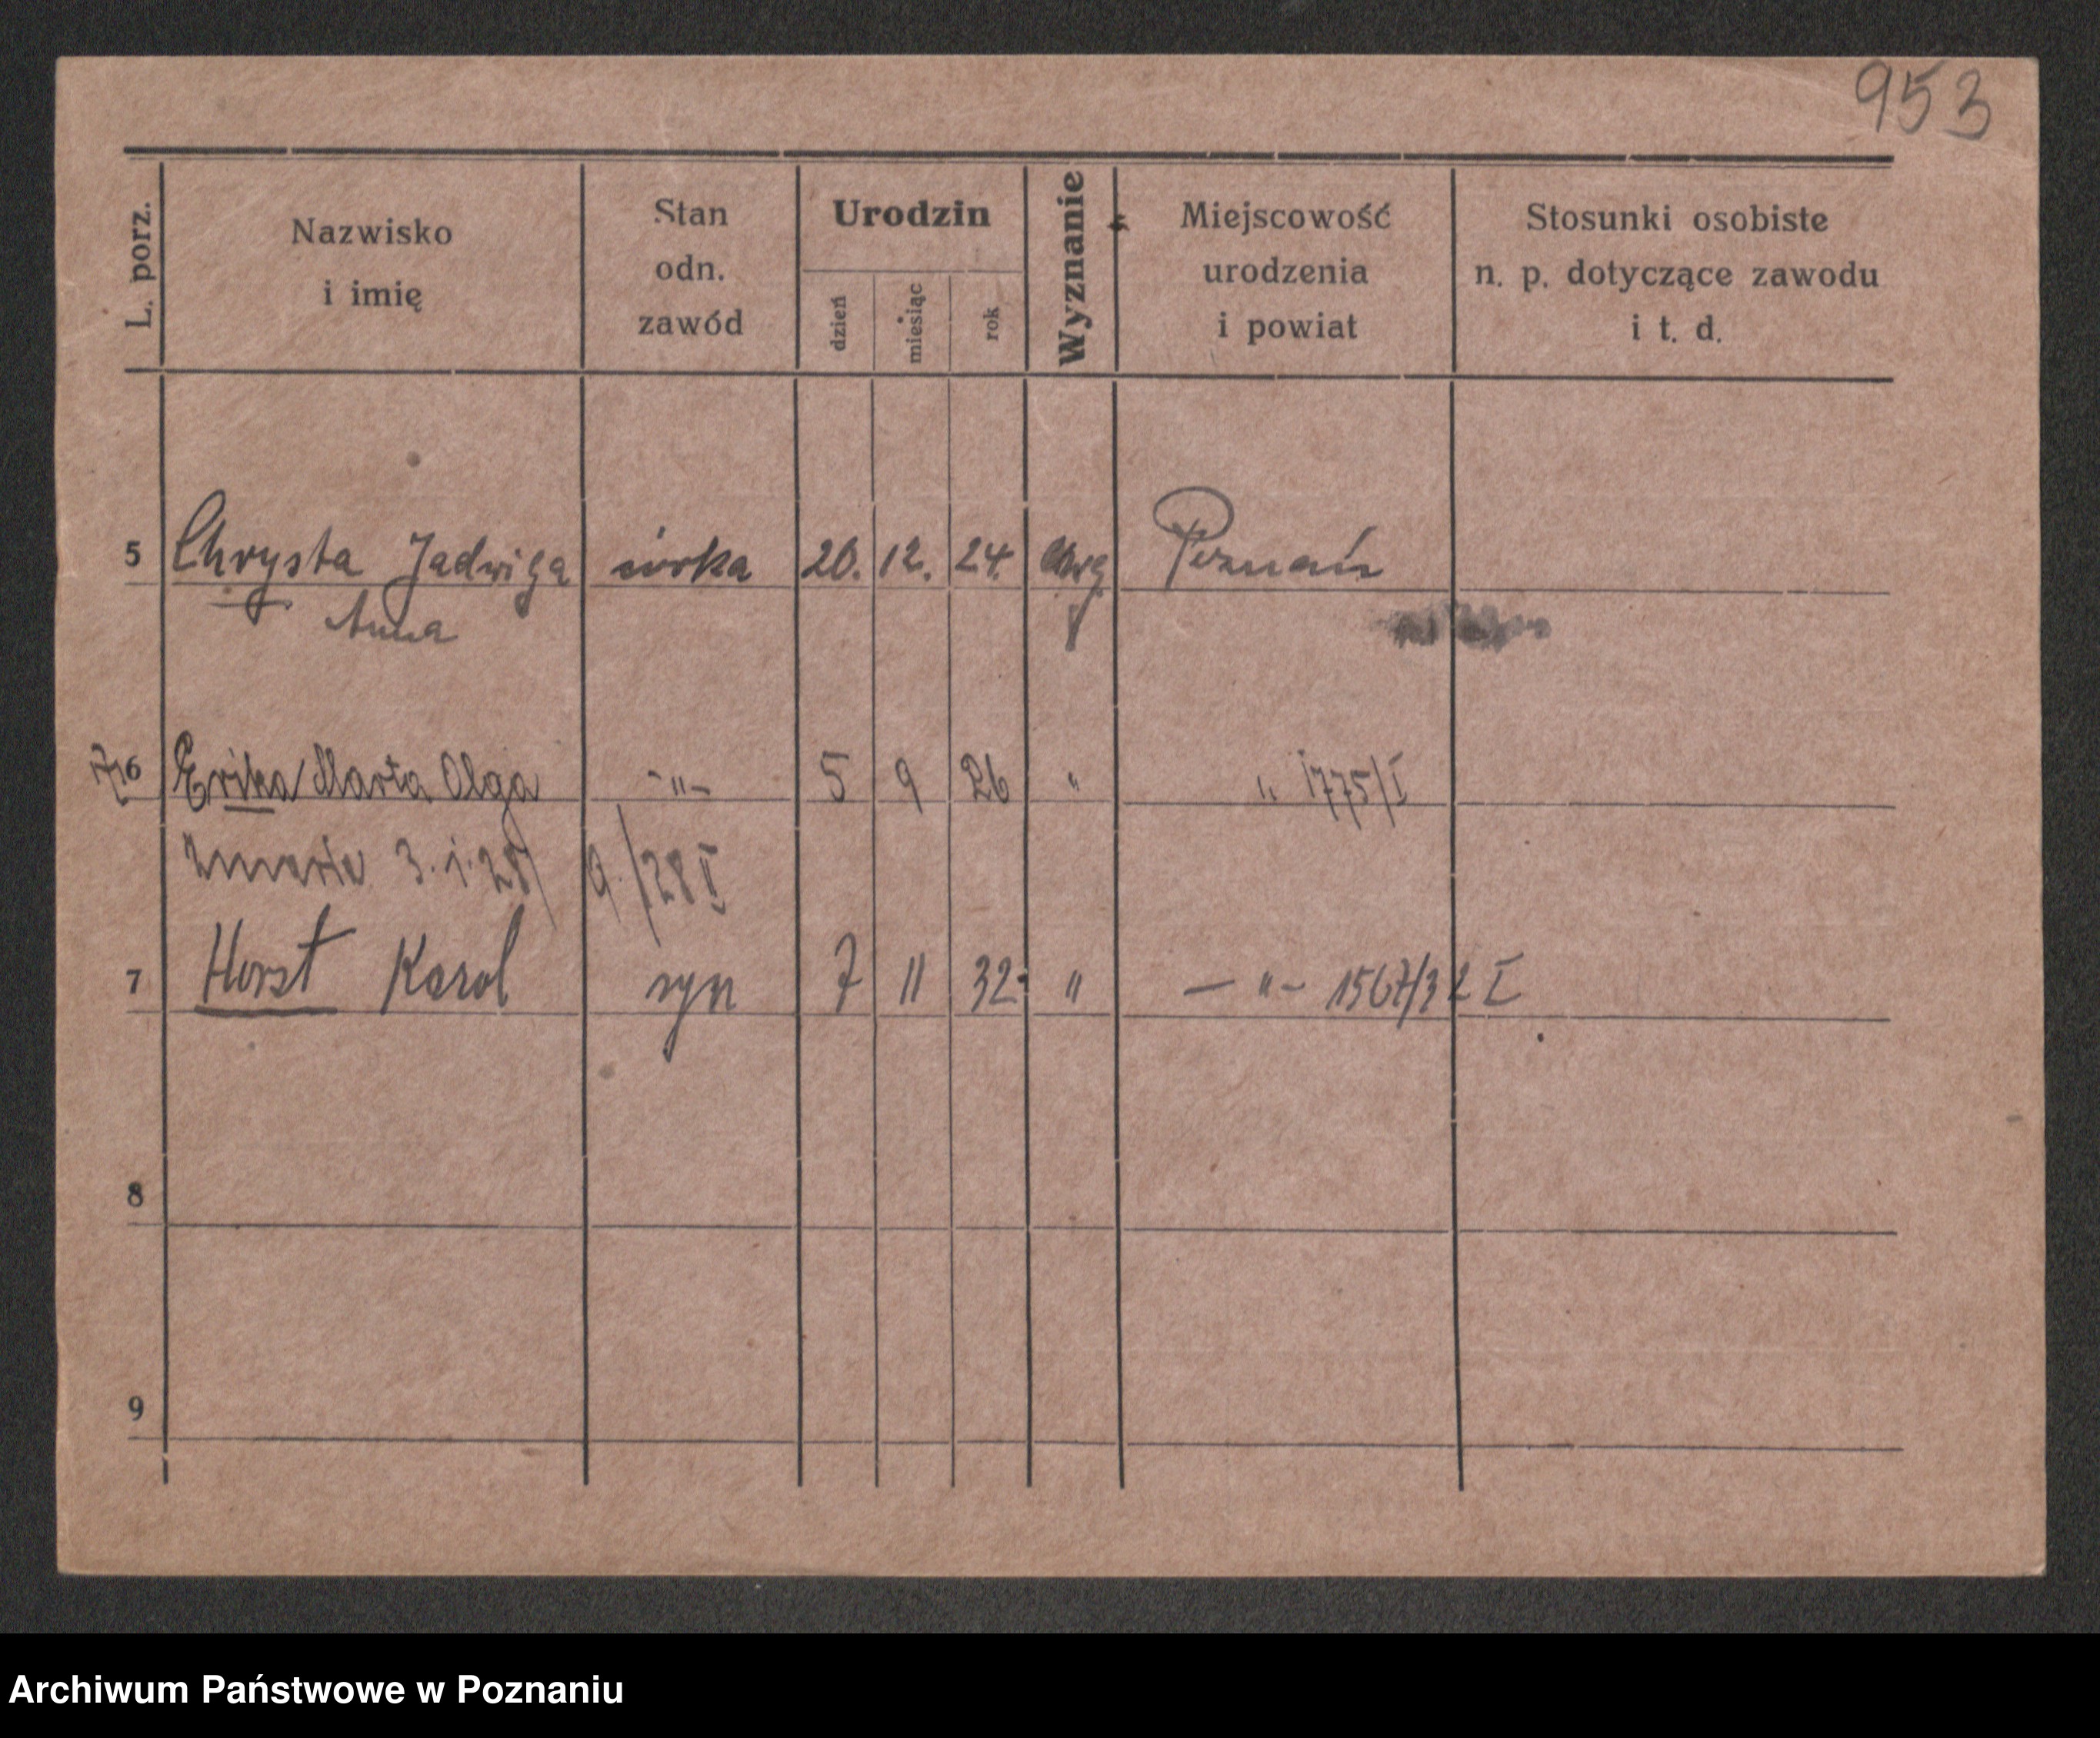 953
L. porz.
Nazwisko
i imię
Stan
odn.
zawód
Urodzin
dzień
miesiąc
rok
Wyznanie
Miejscowość
urodzenia
i powiat
Stosunki osobiste
n. p. dotyczące zawodu
i t. d.
5 Chrysta Jadwiga córka 20. 12. 24. Poznań
Anna
6 Erika Marta Olga -"- 5 9 26 " " 1775/I
zmarła 3.1.28 9/28 I
7 Horst Karol syn 7 11 32 " -"- 1567/32 I
8
9
Archiwum Państwowe w Poznaniu